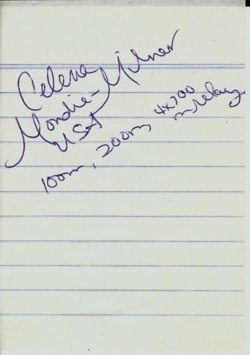 Celena
Mondie-Milner
USA
100m, 200m, 4x100
m relay